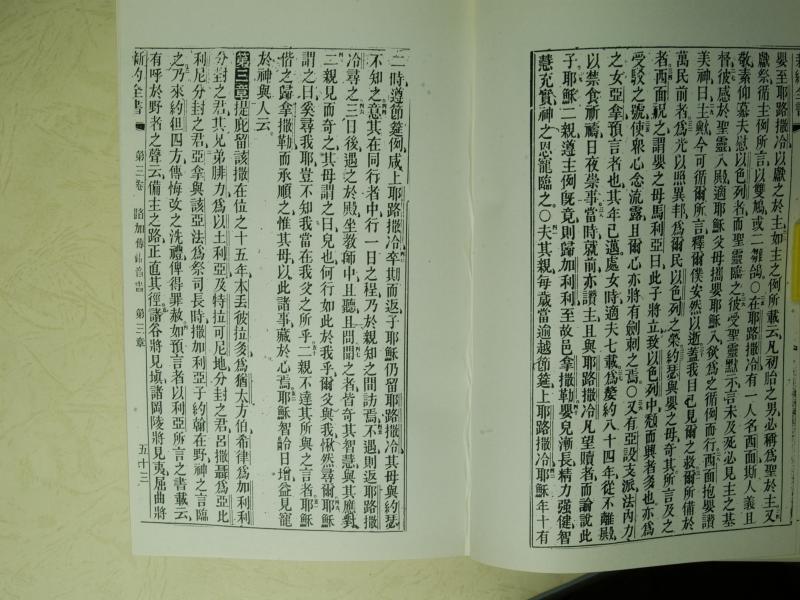 嬰至耶路撒冷以獻之於主如主之例所載云凡初胎之男必稱爲聖於主又
獻祭循主例所言以雙鳩或二雛鴿〇在耶路撒冷有一人名西面斯人義且
敬素仰慕夫慰以色列者而聖靈臨之彼受聖靈默示言未及死必見主之基
督彼感於聖靈入殿適耶穌父母攜嬰耶穌入欲爲之循例而行西面抱嬰讚
美神曰主歟今可循爾所言釋爾僕安然以逝蓋我目已見爾之救爾所備於
萬民前者爲光以照異邦爲爾民以色列之榮約瑟與嬰之母奇其所言及之
者西面祝之謂嬰之母馬利亞曰此子將立致以色列中頹而興者多也亦爲
受駁之號使衆心念流露且爾心亦將有劍刺之焉〇又有亞設支派法內力
之女亞拿預言者也其年已邁處女時適夫七載爲嫠約八十四年從不離殿
以禁食祈禱日夜崇事當時就前亦讚主且與耶路撒冷凡望贖者而論說此
子耶穌二親遵主例既竟則歸加利利至故邑拿撒勒嬰兒漸長精力强健智
慧充實神之恩寵臨之〇夫其親每歲當逾越節筵上耶路撒冷耶穌年十有
二時遵節筵例咸上耶路撒冷卒期而返子耶穌仍留耶路撒冷其母與約瑟
不知之意其在同行者中行一日之程乃於親知之間訪焉不遇則返耶路撒
冷尋之三日後遇之於殿坐教師中且聽且問聞之者皆奇其智慧與其應對
二親見而奇之其母謂之曰兒也何行如此於我乎爾父與我愀然尋爾耶穌
謂之曰奚尋我耶豈不知我當在我父之所乎二親不達其所與之言者耶穌
偕之歸拿撒勒而承順之惟其母以此諸事藏於心焉耶穌智齡日增益見寵
於神與人云
第三章提庇留該撒在位之十五年本丟彼拉多爲猶太方伯希律爲加利利
分封之君其兄弟腓力爲以土利亞及特拉可尼地分封之君呂撒聶爲亞比
利尼分封之君亞拿與該亞法爲祭司長時撒加利亞子約翰在野神之言臨
之乃來約但四方傳悔改之洗禮俾得罪赦如預言者以利亞所言之書載云
有呼於野者之聲云備主之路正直其徑諸谷將見塡諸岡陵將見夷屈曲將
新約全書 第三卷 路加傳福音書 第三章 五十三